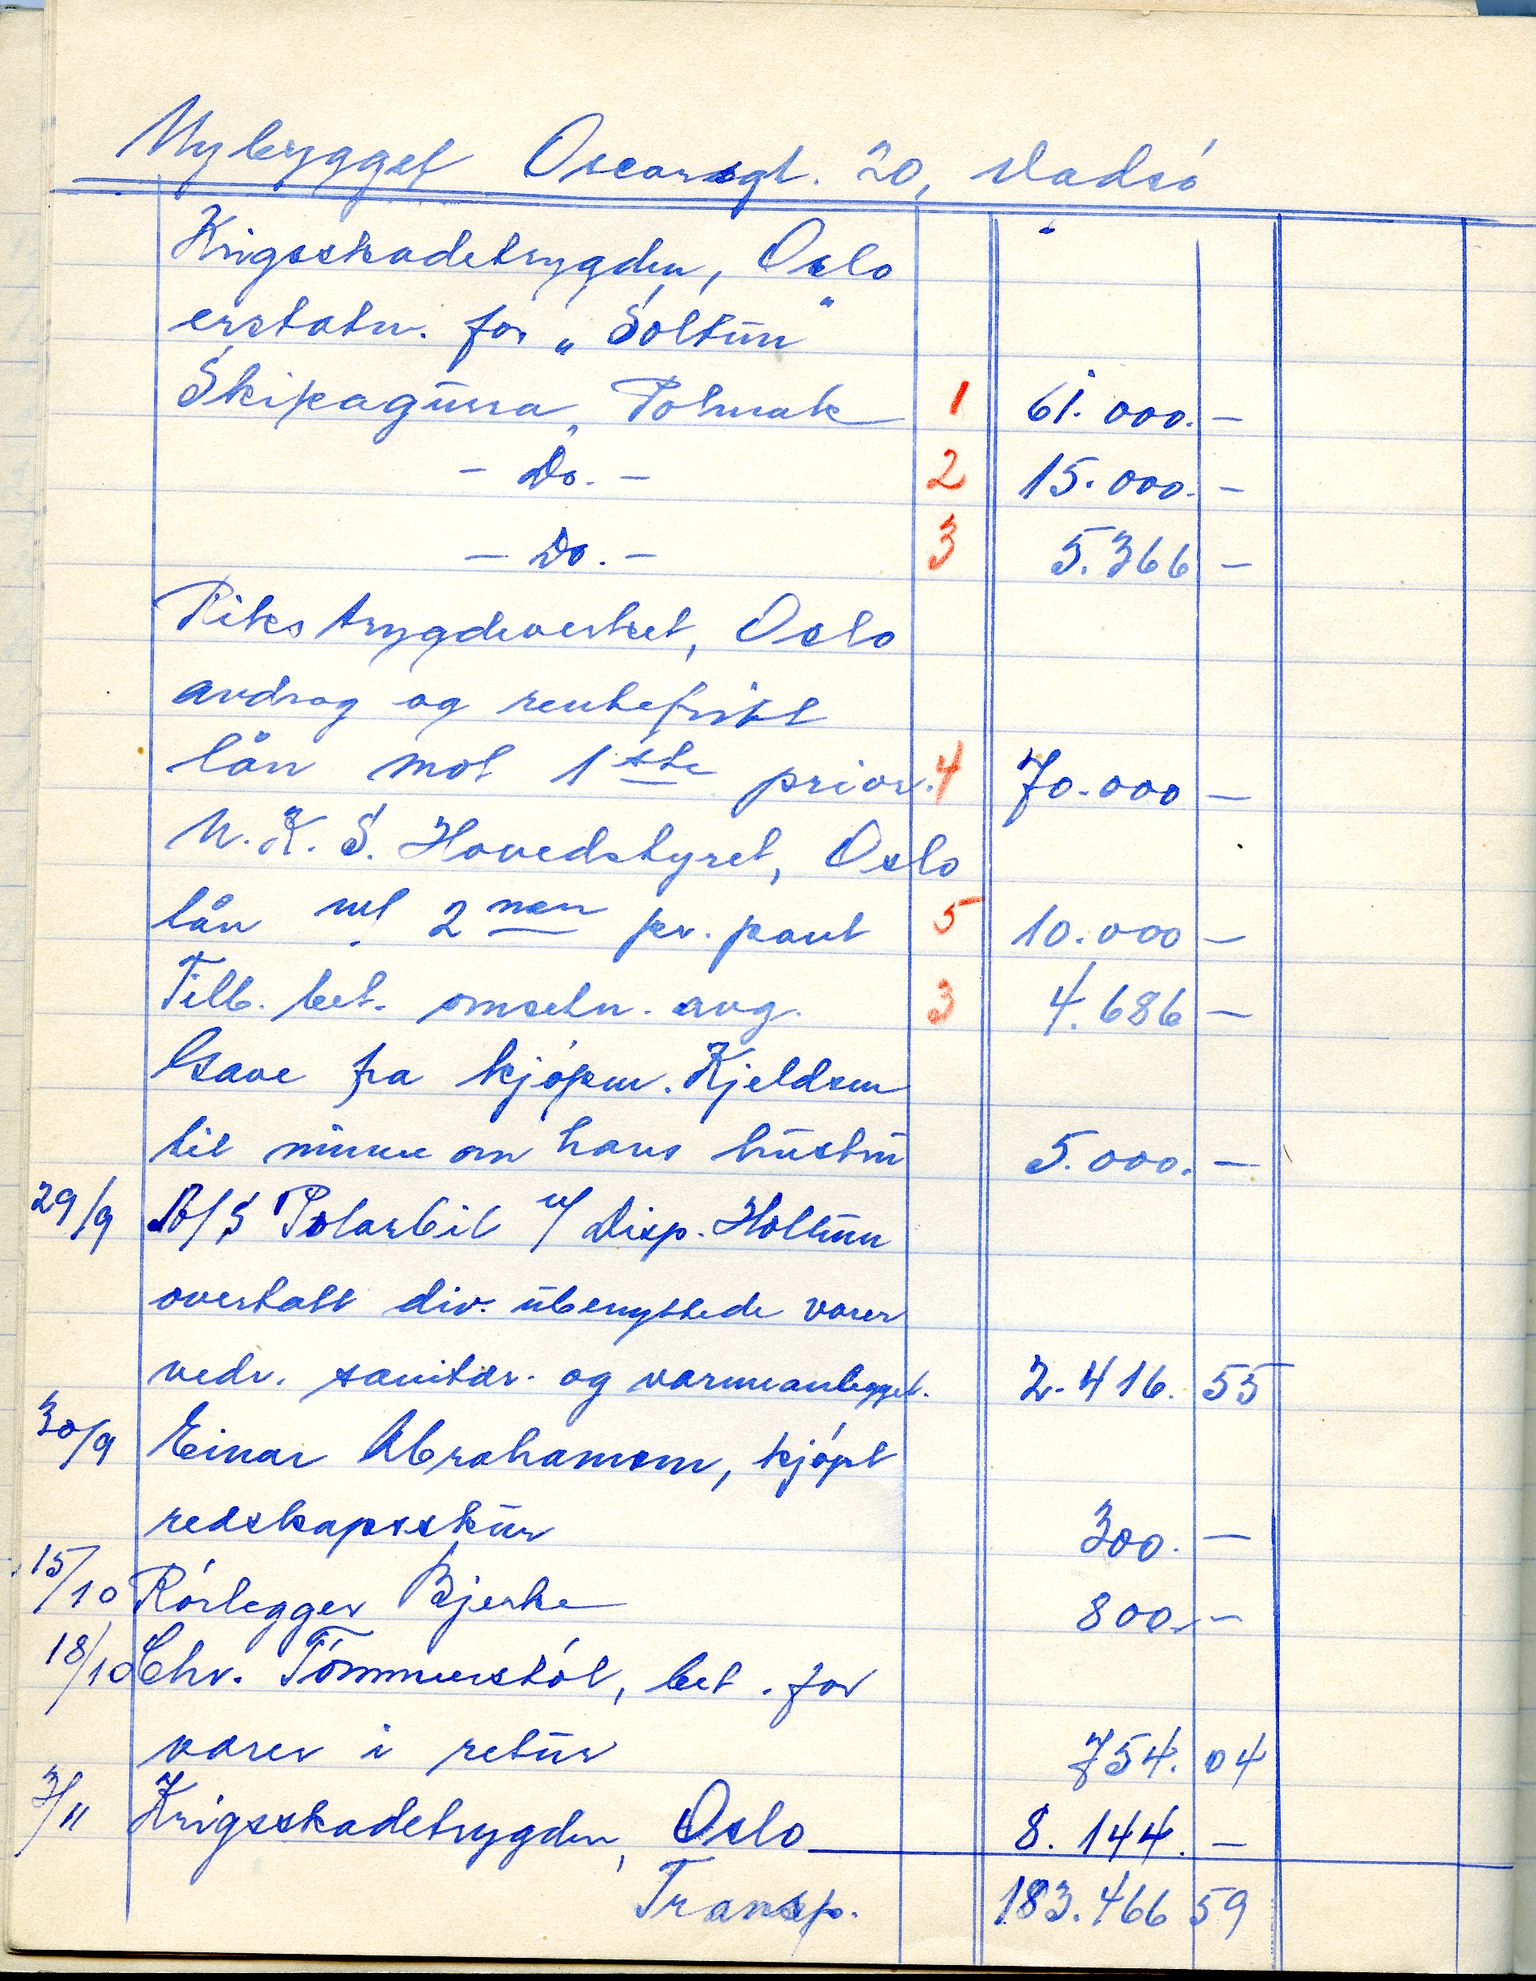 Nybygget Oscarsgt. 20, Vadsó
Krigsskadetrygden, Oslo
erstatn. for „Soltun"
Skipagurra, Polmak 1 61.000. -
- Do. - 2 15.000. -
- Do. - 3 5.366 -
Rikstrygdeverket, Oslo
avdrag og rentefritt
lån mot 1ste prior. 4 70.000 -
N.K.S. Hovedstyret, Oslo
lån m/ 2nen pr. pant 5 10.000 -
Tilb. bet. omsetn. avg. 3 4.686 -
Gave fra kjópm. Kjeldsen
til minne om hans hustru 5.000. -
29/9 A/S Polarbil v/ Disp. Holtum
overtatt div. ubenyttede varer
vedr. sanitær. og varmeanlegget. 2.416. 55
30/9 Einar Abrahamsen, kjópt
redskapsskur 300. -
15/10 Rórlegger Bjerke 800. -
18/10 Chr. Tómmerstól, bet. for
varer i retur 754. 04
3/11 Krigsskadetrygden, Oslo 8.144. -
Transp. 183.466 59